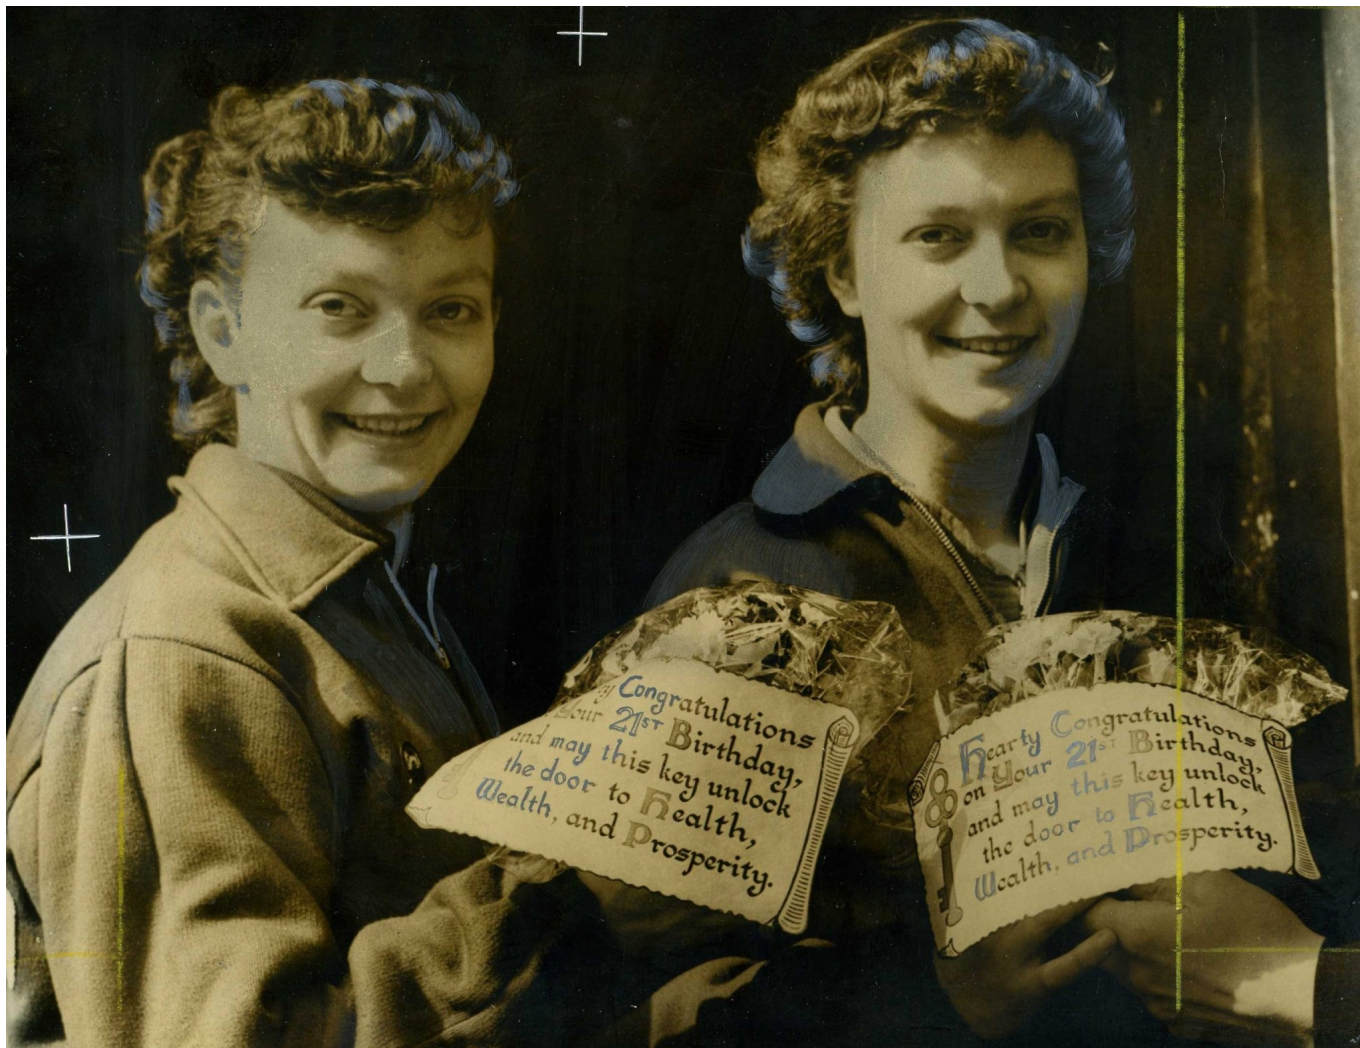 y Congratulations
Your 21ST Birthday,
and may this key unlock
the door to Health,
Wealth, and Prosperity.
Hearty Congratulations
on Your 21ST Birthday,
and may this key unlock
the door to Health,
Wealth, and Prosperity.